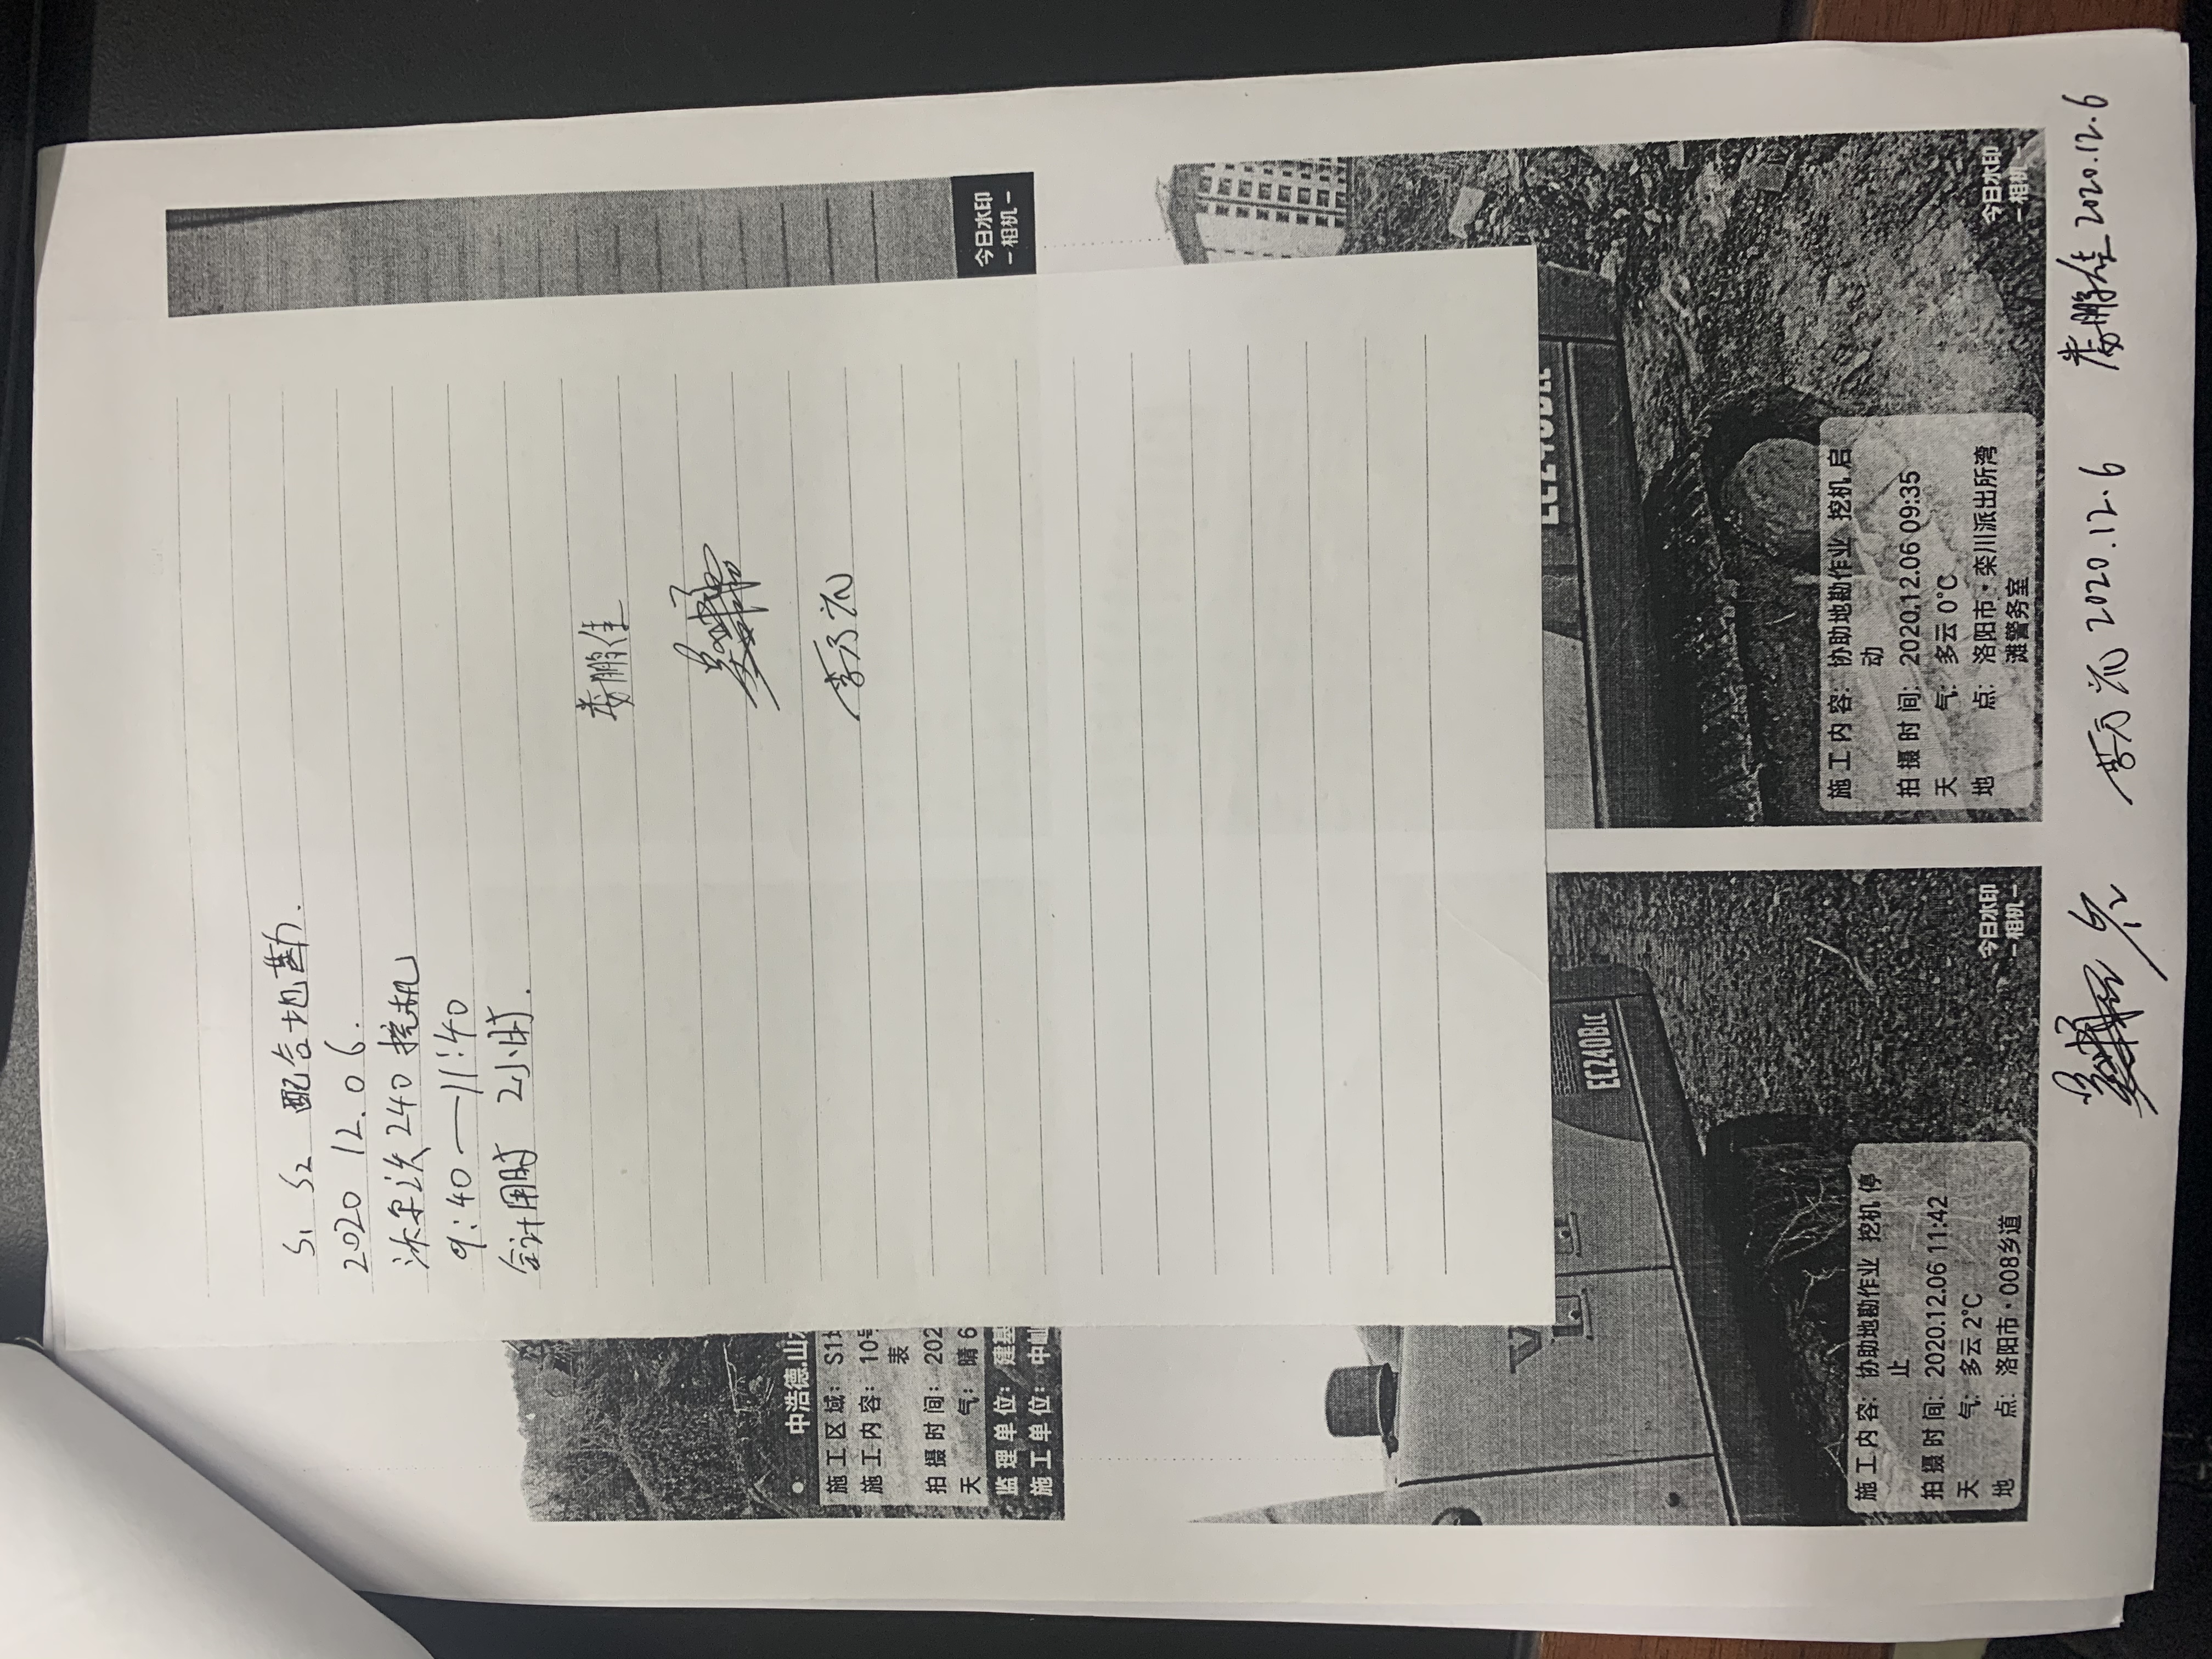 S1 S2 配合地勘.
2020 12.06.
沃尔沃240挖机
9:40—11:40
合计用时 2小时.
娄鹏佳
今日水印
-相机-
中浩德.山
施工区域: S1
施工内容: 10号
表
拍摄时间: 202
天 气: 晴 6
监理单位: 建基
施工单位: 中
EC240BLC
施工内容: 协助地勘作业 挖机停
止
拍摄时间: 2020.12.06 11:42
天 气: 多云 2℃
地 点: 洛阳市·008乡道
今日水印
-相机-
EC240BLC
施工内容: 协助地勘作业 挖机启
动
拍摄时间: 2020.12.06 09:35
天 气: 多云 0℃
地 点: 洛阳市·栾川派出所湾
滩警务室
今日水印
-相机-
2020.12.6 娄鹏佳 2020.12.6